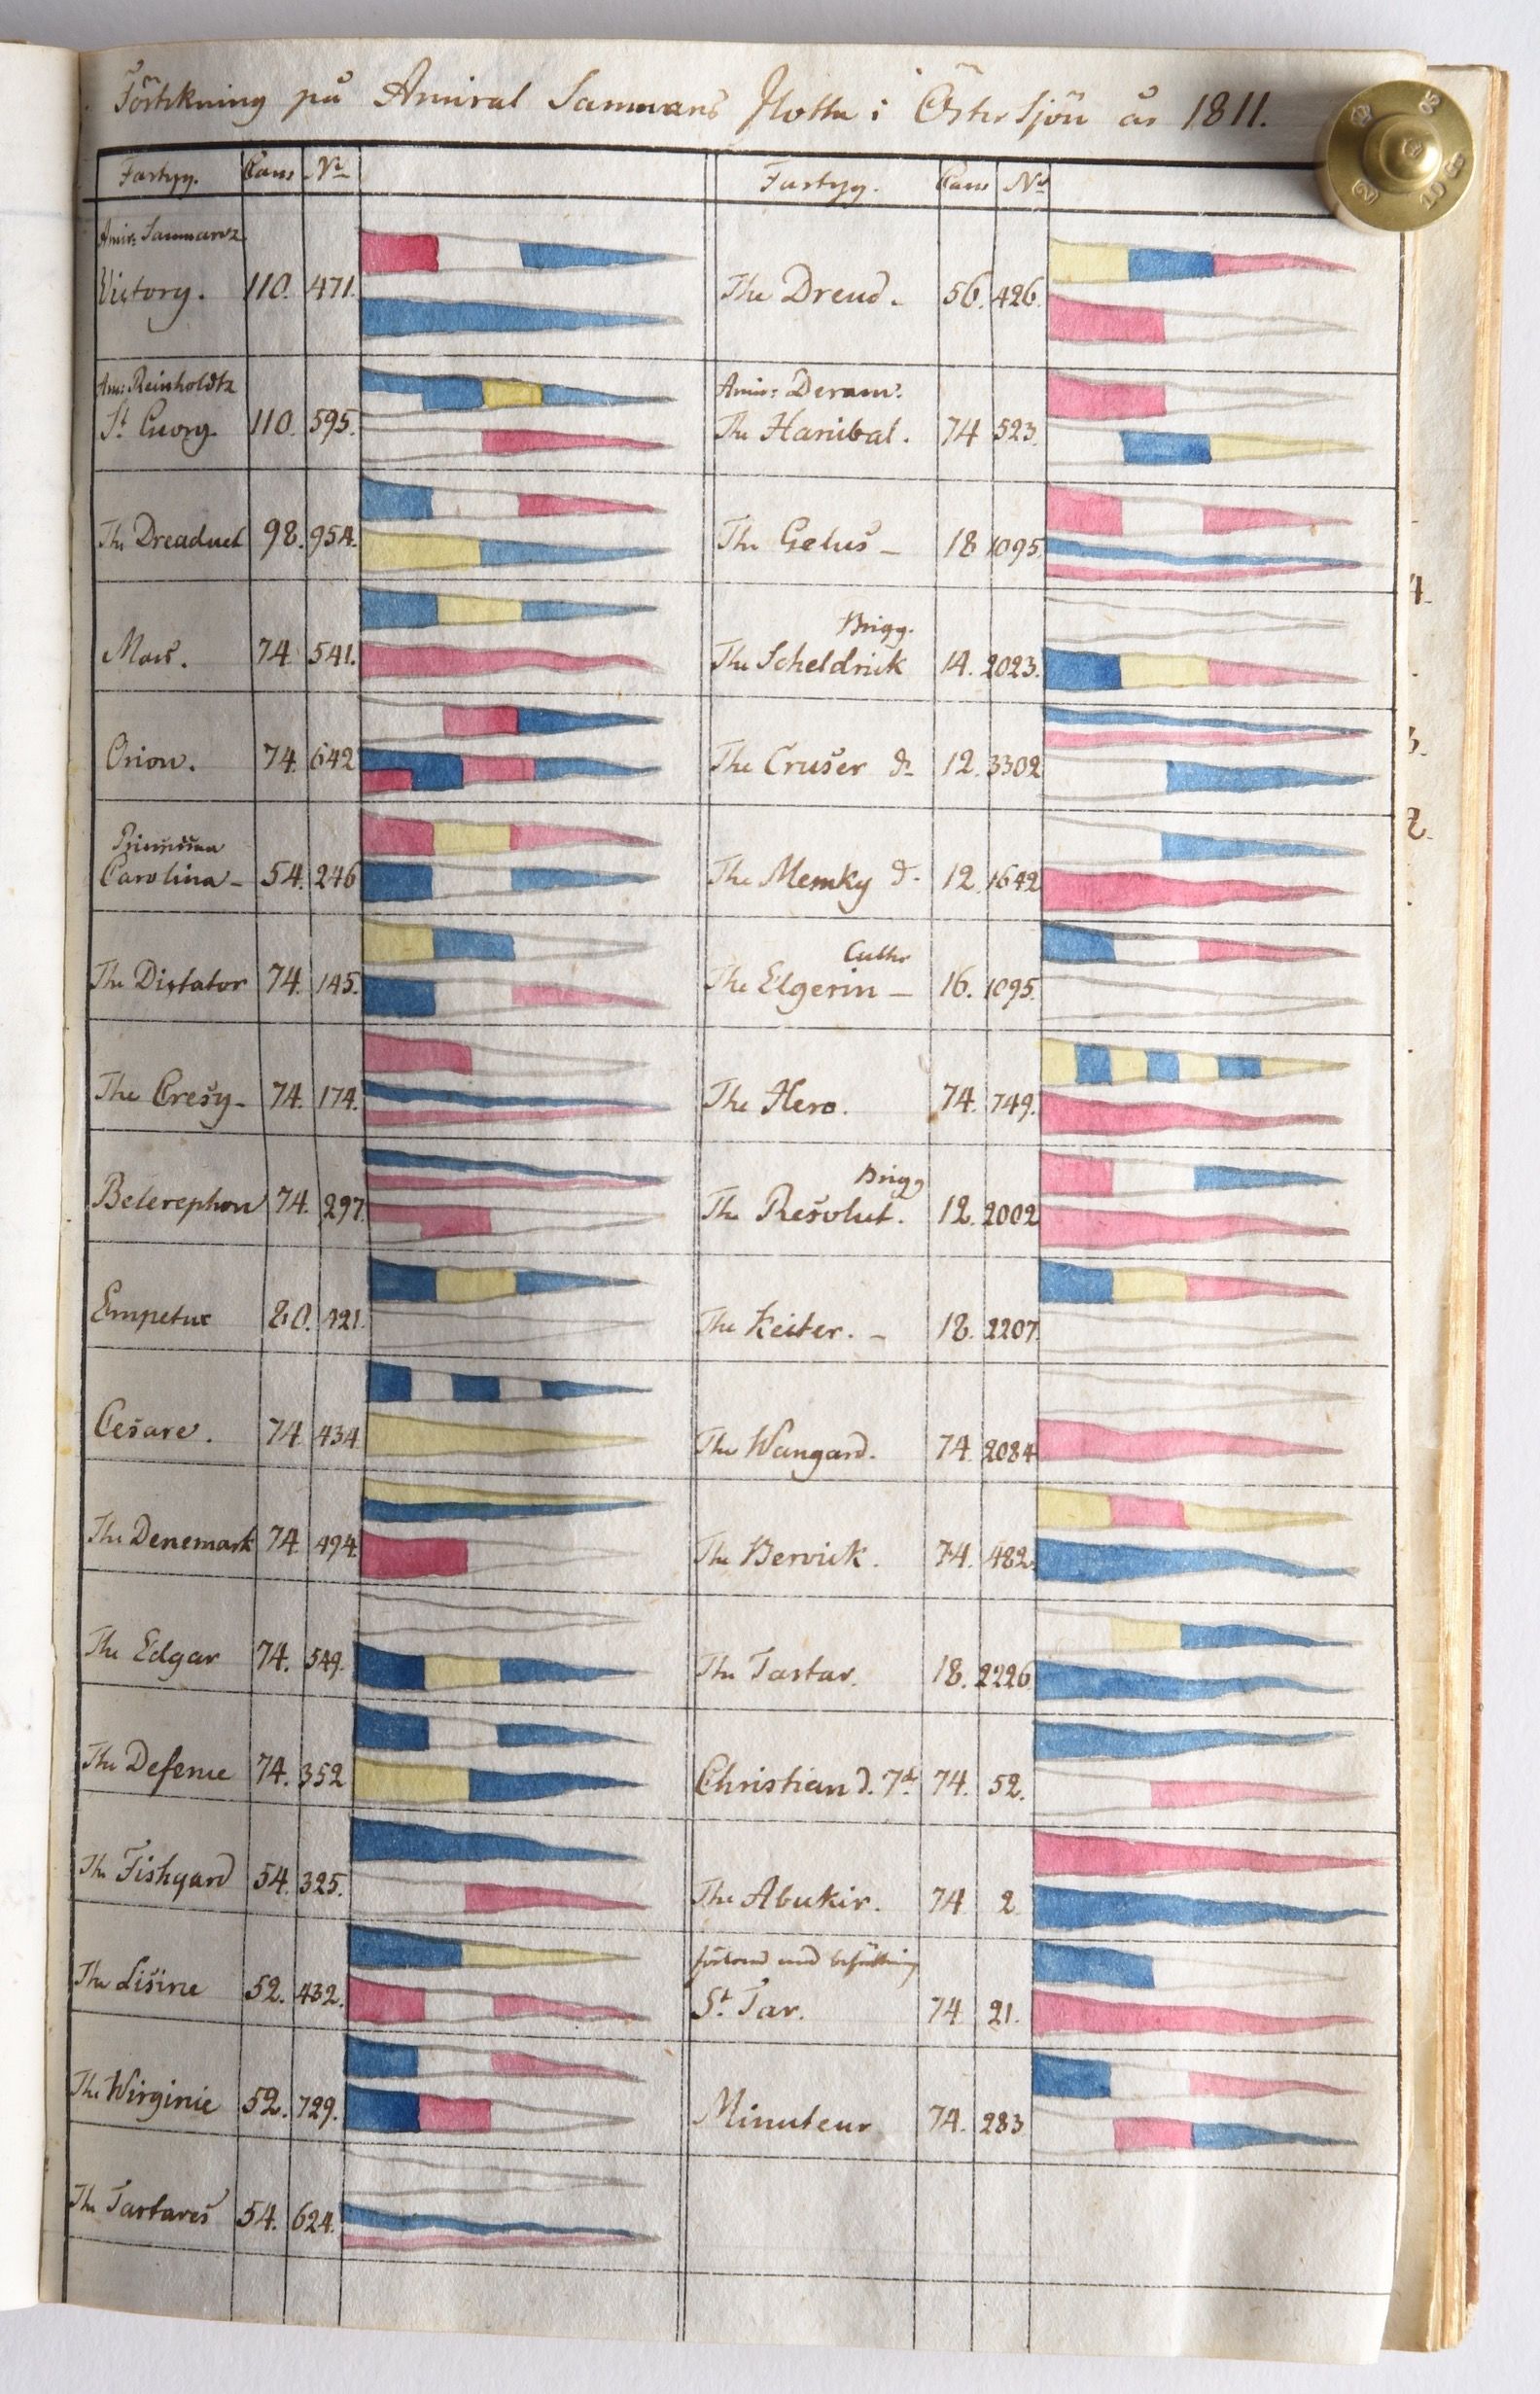 Förtekning på Amiral Saumars flotta i Östersjön år 1811.
Fartyg. Can: No
Amir: Saumarz
Victory. 110. 471.
Am: Reinholdtz
St Georg 110. 595.
The Dreadnet 98. 954.
Mars. 74 541.
Orion. 74. 642
Princissan
Carolina 54. 246
The Dictator 74. 145.
The Cresy 74. 174.
Belerephon 74. 297
Empetux 80. 421.
Cesare. 74 434
The Denemark 74. 494.
The Edgar 74. 549.
The Defence 74. 352
The Fishgard 54. 325.
The Lisine 52. 432.
The Wirginie 52. 729.
The Tartares 54. 624.
Fartyg. Can: No
The Dread 56. 426.
Amir: Deram:
The Hanibal. 74 523.
The Gelus 18 1095.
Brigg.
The Scheldrick 14. 2023.
The Cruser do 12. 3302
The Memky do 12. 1642
Cutter
The Elgerin 16. 1095.
The Hero. 74. 749.
Brigg
The Resolut. 12. 2002
The Keiter. 18. 2207.
The Wangard. 74 2084
The Bervick. 74. 482.
The Tartar. 18. 2226.
Christian d. 7de 74. 52.
The Abukir. 74 2
förlorad med besättning
St. Tar. 74 21.
Minuteur 74. 283